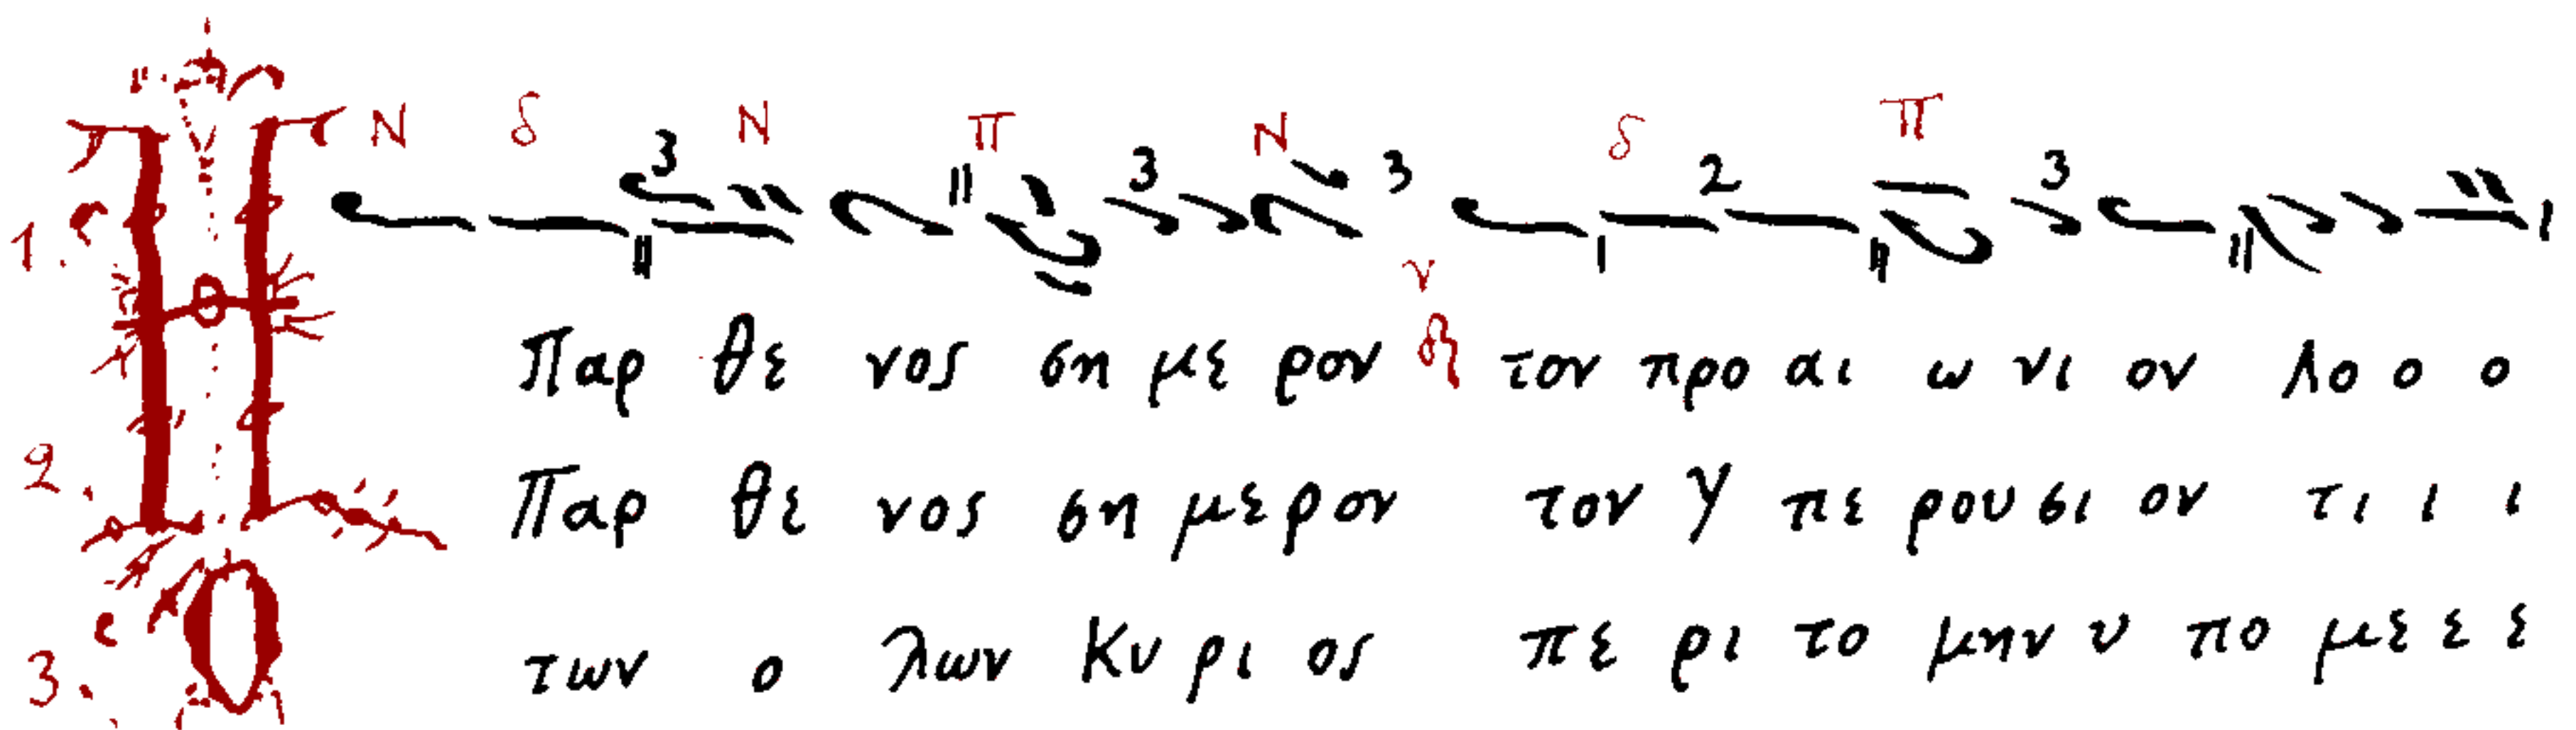 Ν δ 3 Ν π 3 Ν 3 δ 2 π 3
1. Παρ θε νος ση με ρον τον προ αι ω νι ον Λο ο ο
2. Παρ θε νος ση με ρον τον υ πε ρου σι ον τι ι ι
3. των ο λων Κυ ρι ος πε ρι το μην υ πο με ε ε